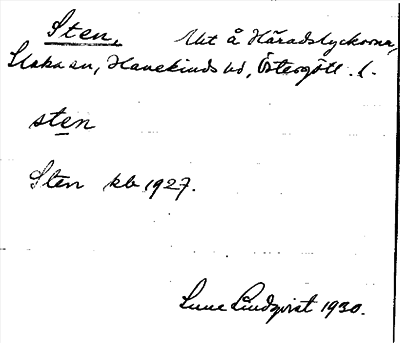 Sten, Utt å Häradstyckorna,
Slaka sn, Hanekinds hd, Östergötl. l.
sten
Sten kb 1927.
Sune Lindqvist 1930.